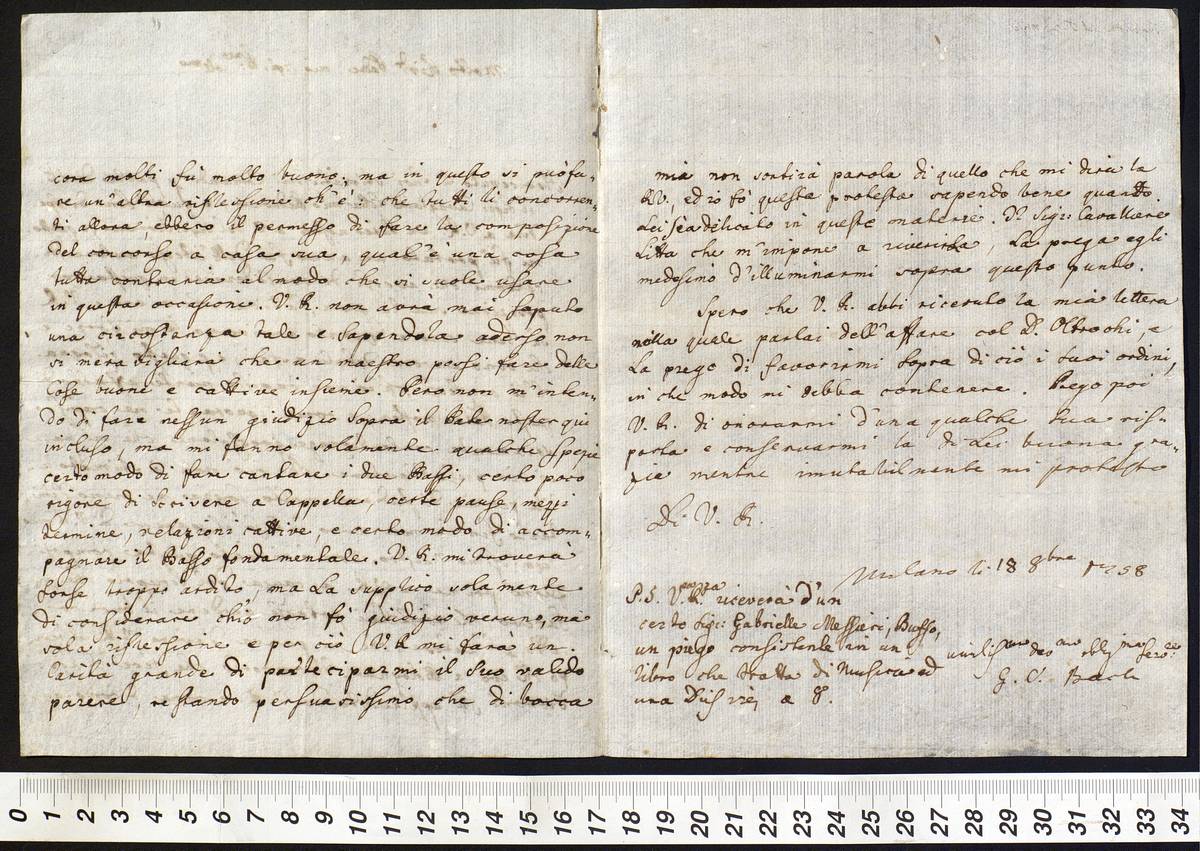 cora molti fù molto buono; ma in questo si può fa-
re un'altra riflessione ch'è: che tutti li concorren-
ti allora, ebbero il permesso di fare la composizione
del concorso a casa sua, qual'è una cosa
tutta contraria al modo che si suole usare
in questa occasione. V. R. non avrà mai saputo
una circostanza tale e sapendola adesso non
si meravigliarà che un maestro possi fare delle
Cose buone e cattive insieme. Però non m'inten-
do di fare nessun giudizio sopra il Pater noster qui
incluso, ma mi fanno solamente qualche spezie
certo modo di fare cantare i due Bassi, certo poco
rigore di scrivere a Cappella, certe pause, mezzi
termine, relazioni cattive, e certo modo di accom-
pagnare il Basso fondamentale. V. R. mi troverà
forse troppo ardito, ma La supplico solamente
di considerare ch'io non fò giudizio veruno, ma
sola riflessione e per ciò V. R. mi farà un.
Carità grande di parteciparmi il suo valido
parere, restando persuasissimo che di bocca
mia non sortirà parola di quello che mi dirà la
R.V. ed io fò questa protesta sapendo bene quanto
Lei sea delicato in queste materie. Il Sigr: Cavaliere
Litta che m'impone a riverirla, La prega egli
medesimo d'illuminarmi sopra questo punto.
Spero che V. R. abbi ricevuto la mia lettera
nella quale parlai dell'affare col Dr. Oltrochi, e
La prego di favorirmi sopra di ciò i suoi ordini,
in che modo mi debba contenere. Prego poi
V. R. di onorarmi d'una qualche sua ris-
posta e conservarmi la di Lei buona gra-
zie mentre imutabilmente mi protesto
Di V. R.
Milano li 18 8bre 1758
P.S. V. R. riceverà d'un
certo Sigr: Gabrielle Messieri, Buffo,
un piego consistente in un
libro che tratta di Musica ed
una Dies irae a 8.
umilismo devmo obligmo servre
G. C. Bach